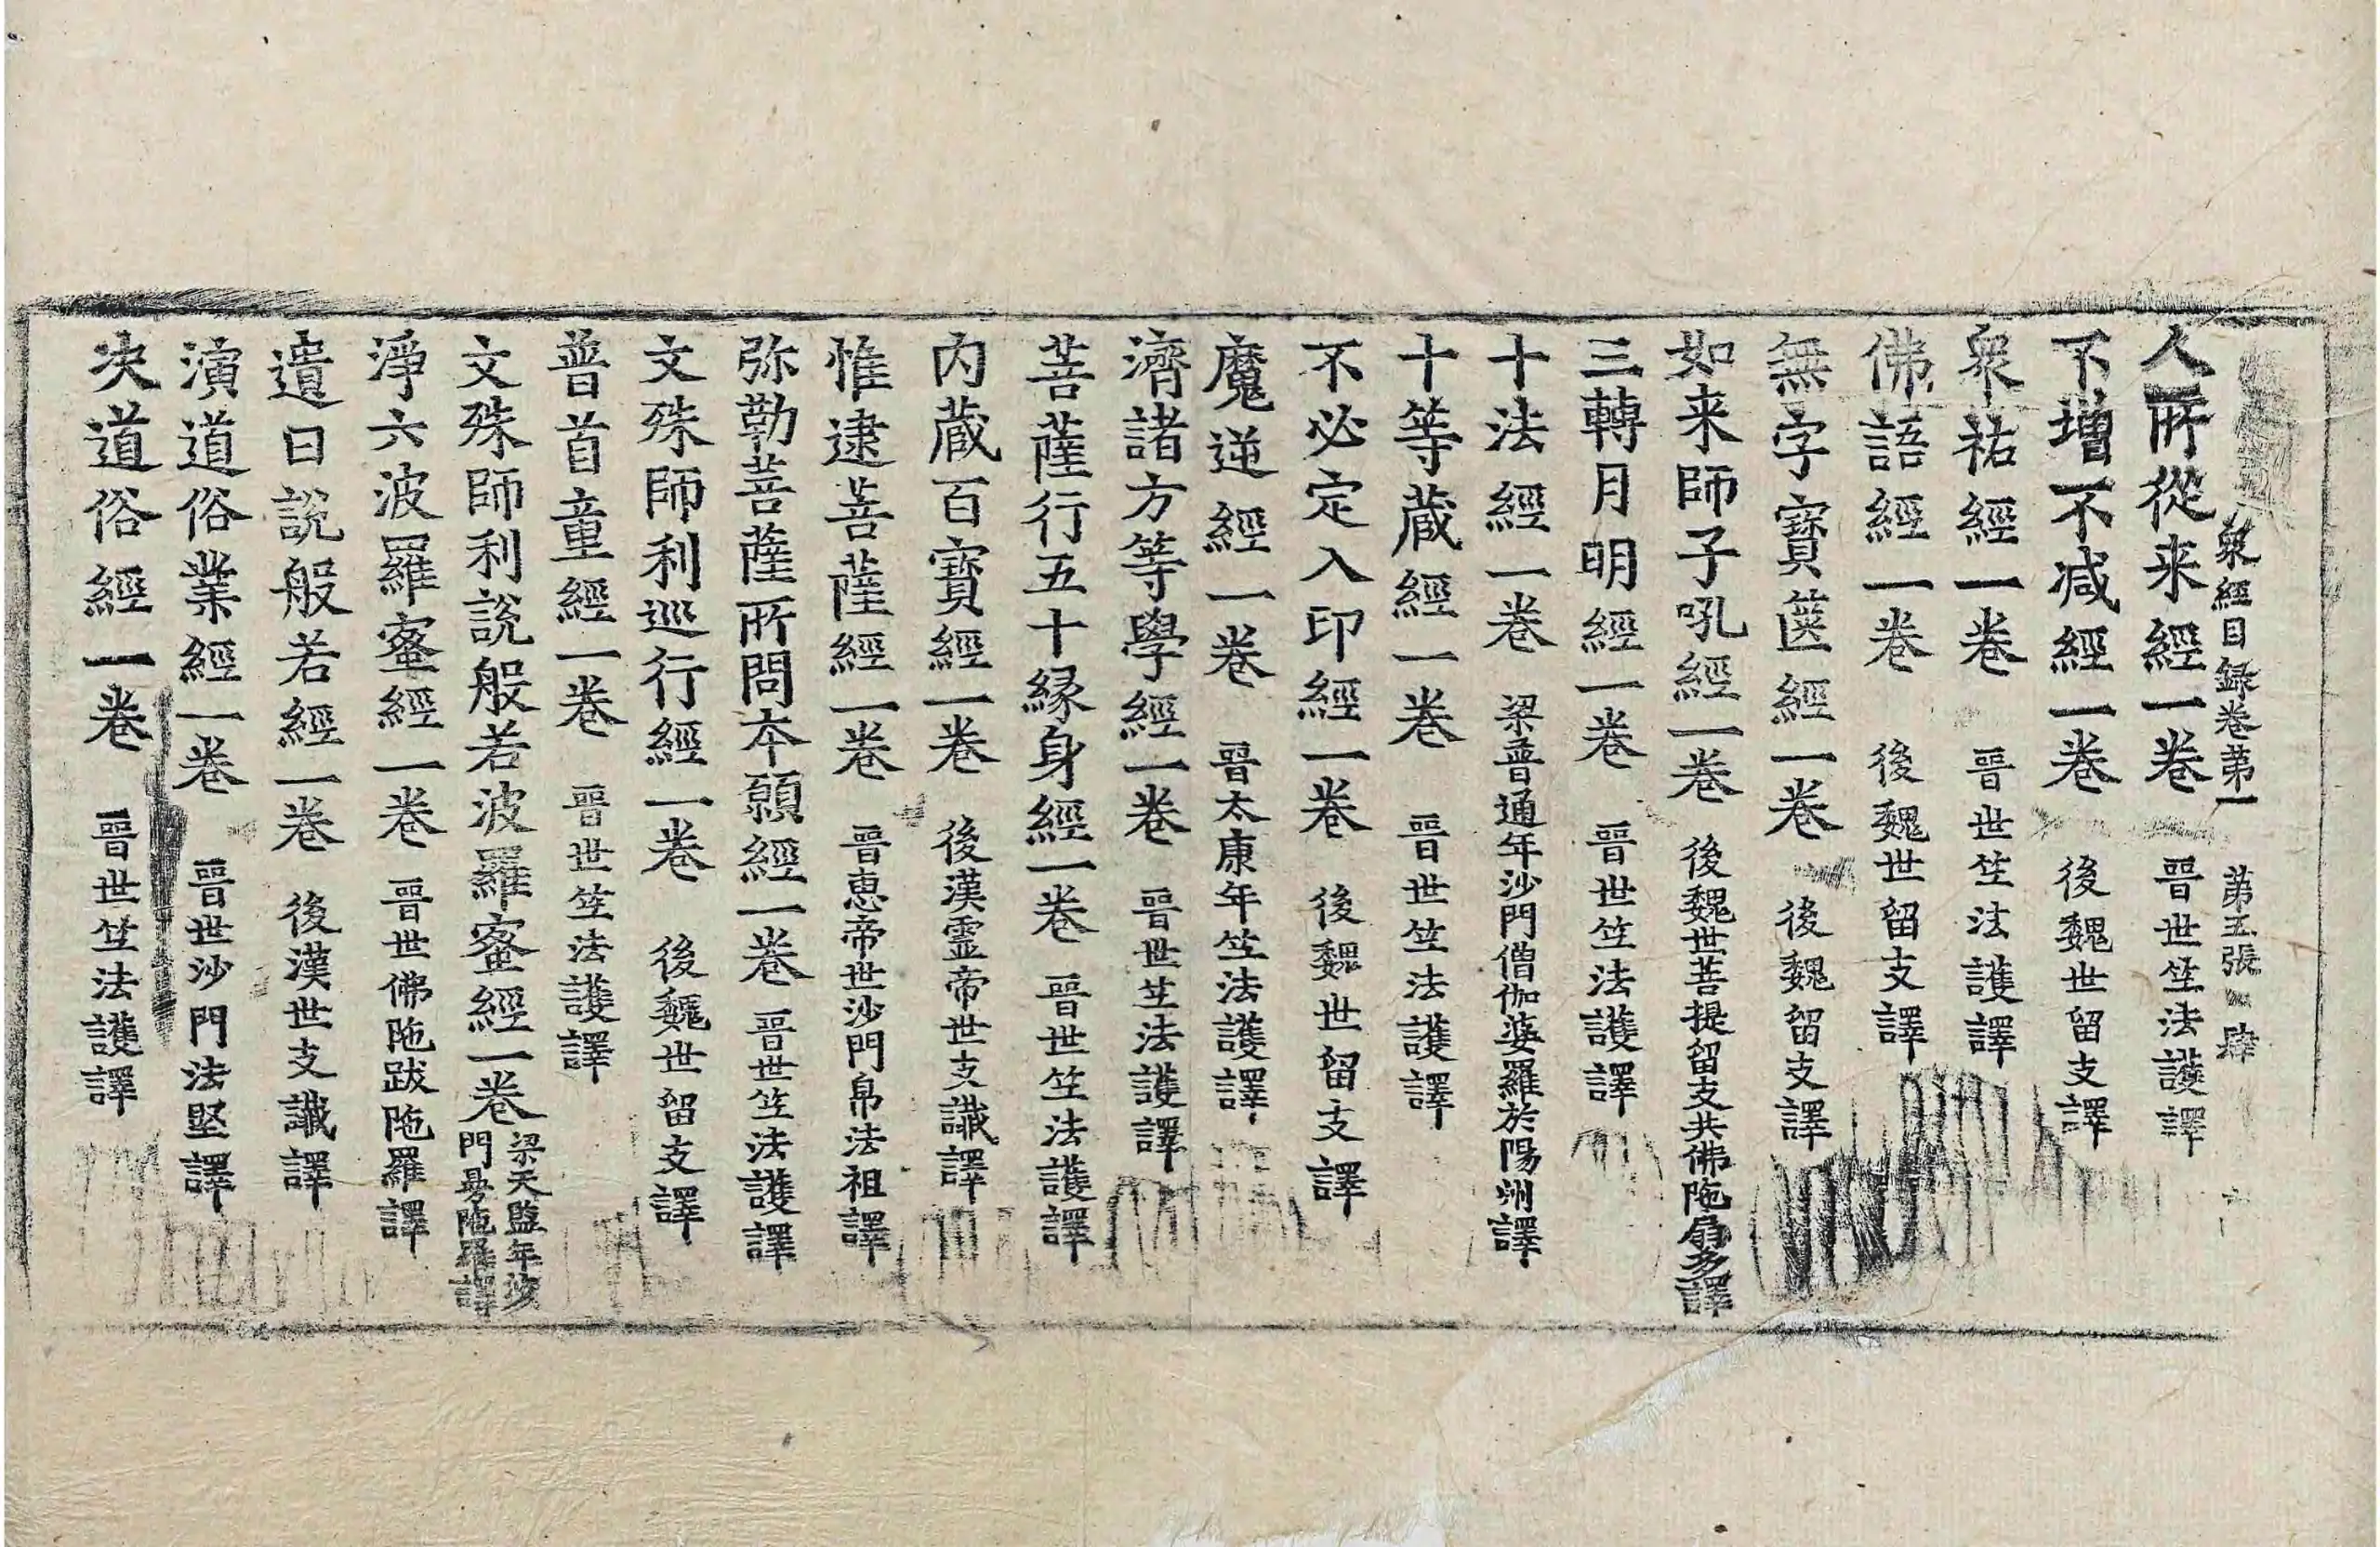 衆經目録卷第一 第五張 肆
人所從来經一卷 晋世竺法護譯
不增不减經一卷 後魏世留支譯
衆祐經一卷 晋世竺法護譯
佛語經一卷 後魏世留支譯
無字寶篋經一卷 後魏留支譯
如来師子吼經一卷 後魏世菩提留支共佛陁扇多譯
三轉月明經一卷 晋世竺法護譯
十法經一卷 梁普通年沙門僧伽婆羅於陽洲譯
十等蔵經一卷 晋世竺法護譯
不必定入印經一卷 後魏世留支譯
魔逆經一卷 晋太康年竺法護譯
濟諸方等學經一卷 晋世竺法護譯
菩薩行五十縁身經一卷 晋世竺法護譯
内蔵百寶經一卷 後漢霊帝世支讖譯
惟逮菩薩經一卷 晋恵帝世沙門帛法祖譯
弥勒菩薩所問本願經一卷 晋世竺法護譯
文殊師利巡行經一卷 後魏世留支譯
普首童經一卷 晋世竺法護譯
文殊師利説般若波羅蜜經一卷 梁天監年沙門曼陁羅譯
淨六波羅蜜經一卷 晋世佛陁跋陁羅譯
遺日説般若經一卷 後漢世支讖譯
演道俗業經一卷 晋世沙門法堅譯
决道俗經一卷 晋世竺法護譯